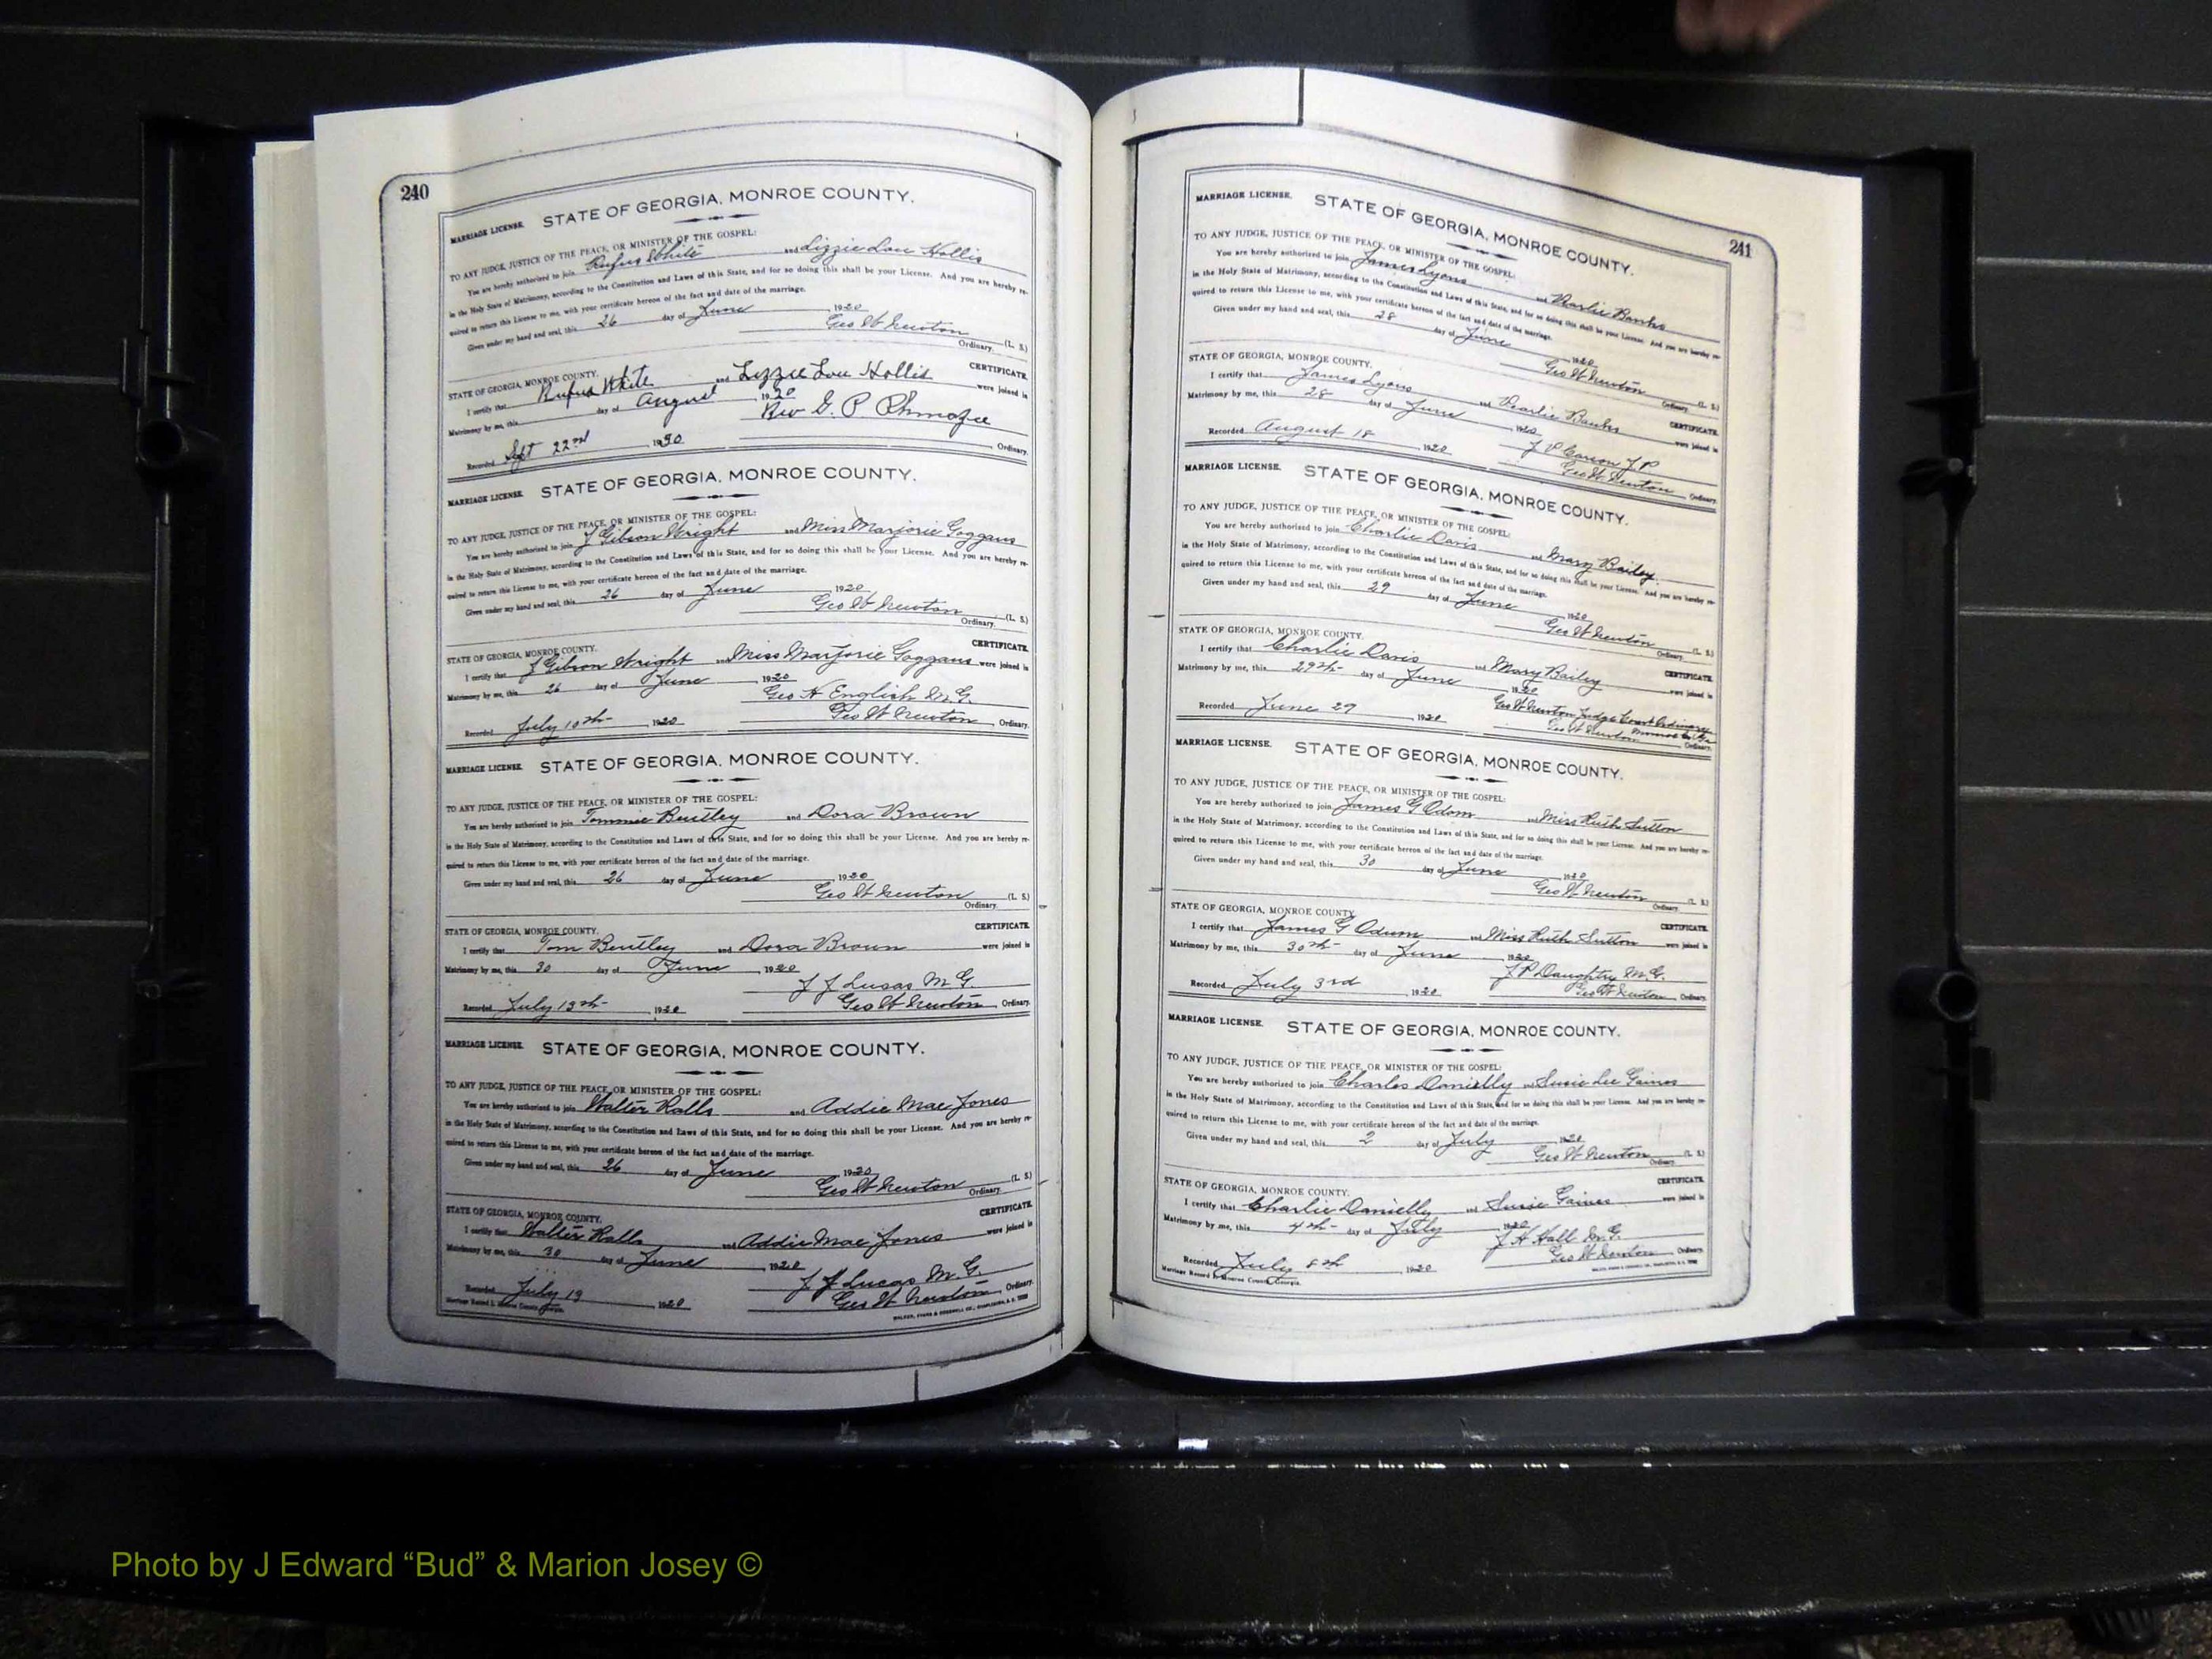 240
MARRIAGE LICENSE. STATE OF GEORGIA, MONROE COUNTY.
TO ANY JUDGE, JUSTICE OF THE PEACE, OR MINISTER OF THE GOSPEL:
You are hereby authorized to join Rufus White and Lizzie Lou Hollis
in the Holy State of Matrimony, according to the Constitution and Laws of this State, and for so doing this shall be your License. And you are hereby re-
quired to return this License to me, with your certificate hereon of the fact and date of the marriage.
Given under my hand and seal, this 26 day of June 1920
Geo W Newton (L. S.)
Ordinary.
STATE OF GEORGIA, MONROE COUNTY. CERTIFICATE.
I certify that Rufus White and Lizzie Lou Hollis were joined in
Matrimony by me, this day of August 1920
Rev G. P.
Recorded Sept 22nd 1920 Ordinary.
MARRIAGE LICENSE. STATE OF GEORGIA, MONROE COUNTY.
TO ANY JUDGE, JUSTICE OF THE PEACE, OR MINISTER OF THE GOSPEL:
You are hereby authorized to join J Gibson Wright and Miss Marjorie Goggans
in the Holy State of Matrimony, according to the Constitution and Laws of this State, and for so doing this shall be your License. And you are hereby re-
quired to return this License to me, with your certificate hereon of the fact and date of the marriage.
Given under my hand and seal, this 26 day of June 1920
Geo W Newton (L. S.)
Ordinary.
STATE OF GEORGIA, MONROE COUNTY. CERTIFICATE.
I certify that J Gibson Wright and Miss Marjorie Goggans were joined in
Matrimony by me, this 26 day of June, 1920
Geo H English M.G.
Recorded July 10th 1920 Geo W Newton, Ordinary.
MARRIAGE LICENSE. STATE OF GEORGIA, MONROE COUNTY.
TO ANY JUDGE, JUSTICE OF THE PEACE, OR MINISTER OF THE GOSPEL:
You are hereby authorized to join Tommie Bentley and Dora Brown
in the Holy State of Matrimony, according to the Constitution and Laws of this State, and for so doing this shall be your License. And you are hereby re-
quired to return this License to me, with your certificate hereon of the fact and date of the marriage.
Given under my hand and seal, this 26 day of June 1920
Geo W Newton (L. S.)
Ordinary.
STATE OF GEORGIA, MONROE COUNTY. CERTIFICATE.
I certify that Tom Bentley and Dora Brown were joined in
Matrimony by me, this 30 day of June, 1920
J J Lucas M G.
Recorded July 13th 1920 Geo W Newton, Ordinary.
MARRIAGE LICENSE. STATE OF GEORGIA, MONROE COUNTY.
TO ANY JUDGE, JUSTICE OF THE PEACE, OR MINISTER OF THE GOSPEL:
You are hereby authorized to join Walter Ralls and Addie Mae Jones
in the Holy State of Matrimony, according to the Constitution and Laws of this State, and for so doing this shall be your License. And you are hereby re-
quired to return this License to me, with your certificate hereon of the fact and date of the marriage.
Given under my hand and seal, this 26 day of June 1920
Geo W Newton (L. S.)
Ordinary.
STATE OF GEORGIA, MONROE COUNTY. CERTIFICATE.
I certify that Walter Ralls and Addie Mae Jones were joined in
Matrimony by me, this 30 day of June, 1920
J J Lucas M.G.
Recorded July 19 1920 Geo W Newton, Ordinary.
Marriage Record Monroe County, Georgia.
241
MARRIAGE LICENSE. STATE OF GEORGIA, MONROE COUNTY.
TO ANY JUDGE, JUSTICE OF THE PEACE, OR MINISTER OF THE GOSPEL:
You are hereby authorized to join James Lyons and Pearlie Banks
in the Holy State of Matrimony, according to the Constitution and Laws of this State, and for so doing this shall be your License. And you are hereby re-
quired to return this License to me, with your certificate hereon of the fact and date of the marriage.
Given under my hand and seal, this 28 day of June 1920
Geo W Newton (L. S.)
Ordinary.
STATE OF GEORGIA, MONROE COUNTY. CERTIFICATE.
I certify that James Lyons and Pearlie Banks were joined in
Matrimony by me, this 28 day of June 1920
J P Carson J P
Recorded August 18 1920 Geo W Newton, Ordinary.
MARRIAGE LICENSE. STATE OF GEORGIA, MONROE COUNTY.
TO ANY JUDGE, JUSTICE OF THE PEACE, OR MINISTER OF THE GOSPEL:
You are hereby authorized to join Charlie Davis and Mary Bailey
in the Holy State of Matrimony, according to the Constitution and Laws of this State, and for so doing this shall be your License. And you are hereby re-
quired to return this License to me, with your certificate hereon of the fact and date of the marriage.
Given under my hand and seal, this 29 day of June 1920
Geo W Newton (L. S.)
Ordinary.
STATE OF GEORGIA, MONROE COUNTY. CERTIFICATE.
I certify that Charlie Davis and Mary Bailey were joined in
Matrimony by me, this 29th day of June 1920
Geo W Newton Judge Court Ordinary
Monroe Co Ga
Recorded June 29 1920 Geo W Newton Ordinary.
MARRIAGE LICENSE. STATE OF GEORGIA, MONROE COUNTY.
TO ANY JUDGE, JUSTICE OF THE PEACE, OR MINISTER OF THE GOSPEL:
You are hereby authorized to join James G Odom and Miss Ruth Sutton
in the Holy State of Matrimony, according to the Constitution and Laws of this State, and for so doing this shall be your License. And you are hereby re-
quired to return this License to me, with your certificate hereon of the fact and date of the marriage.
Given under my hand and seal, this 30 day of June 1920
Geo W Newton (L. S.)
Ordinary.
STATE OF GEORGIA, MONROE COUNTY. CERTIFICATE.
I certify that James G Odum and Miss Ruth Sutton were joined in
Matrimony by me, this 30th day of June 1920
J P Daughtry M.G.
Recorded July 3rd 1920 Geo W Newton, Ordinary.
MARRIAGE LICENSE. STATE OF GEORGIA, MONROE COUNTY.
TO ANY JUDGE, JUSTICE OF THE PEACE, OR MINISTER OF THE GOSPEL:
You are hereby authorized to join Charles Danielly and Susie Lee Gaines
in the Holy State of Matrimony, according to the Constitution and Laws of this State, and for so doing this shall be your License. And you are hereby re-
quired to return this License to me, with your certificate hereon of the fact and date of the marriage.
Given under my hand and seal, this 2 day of July 1920
Geo W Newton (L. S.)
Ordinary.
STATE OF GEORGIA, MONROE COUNTY. CERTIFICATE.
I certify that Charlie Danielly and Susie Gaines were joined in
Matrimony by me, this 4th day of July 1920
J H Hall M.G.
Recorded July 8th 1920 Geo W Newton Ordinary.
Marriage Record Monroe County, Georgia.
Photo by J Edward “Bud” & Marion Josey ©